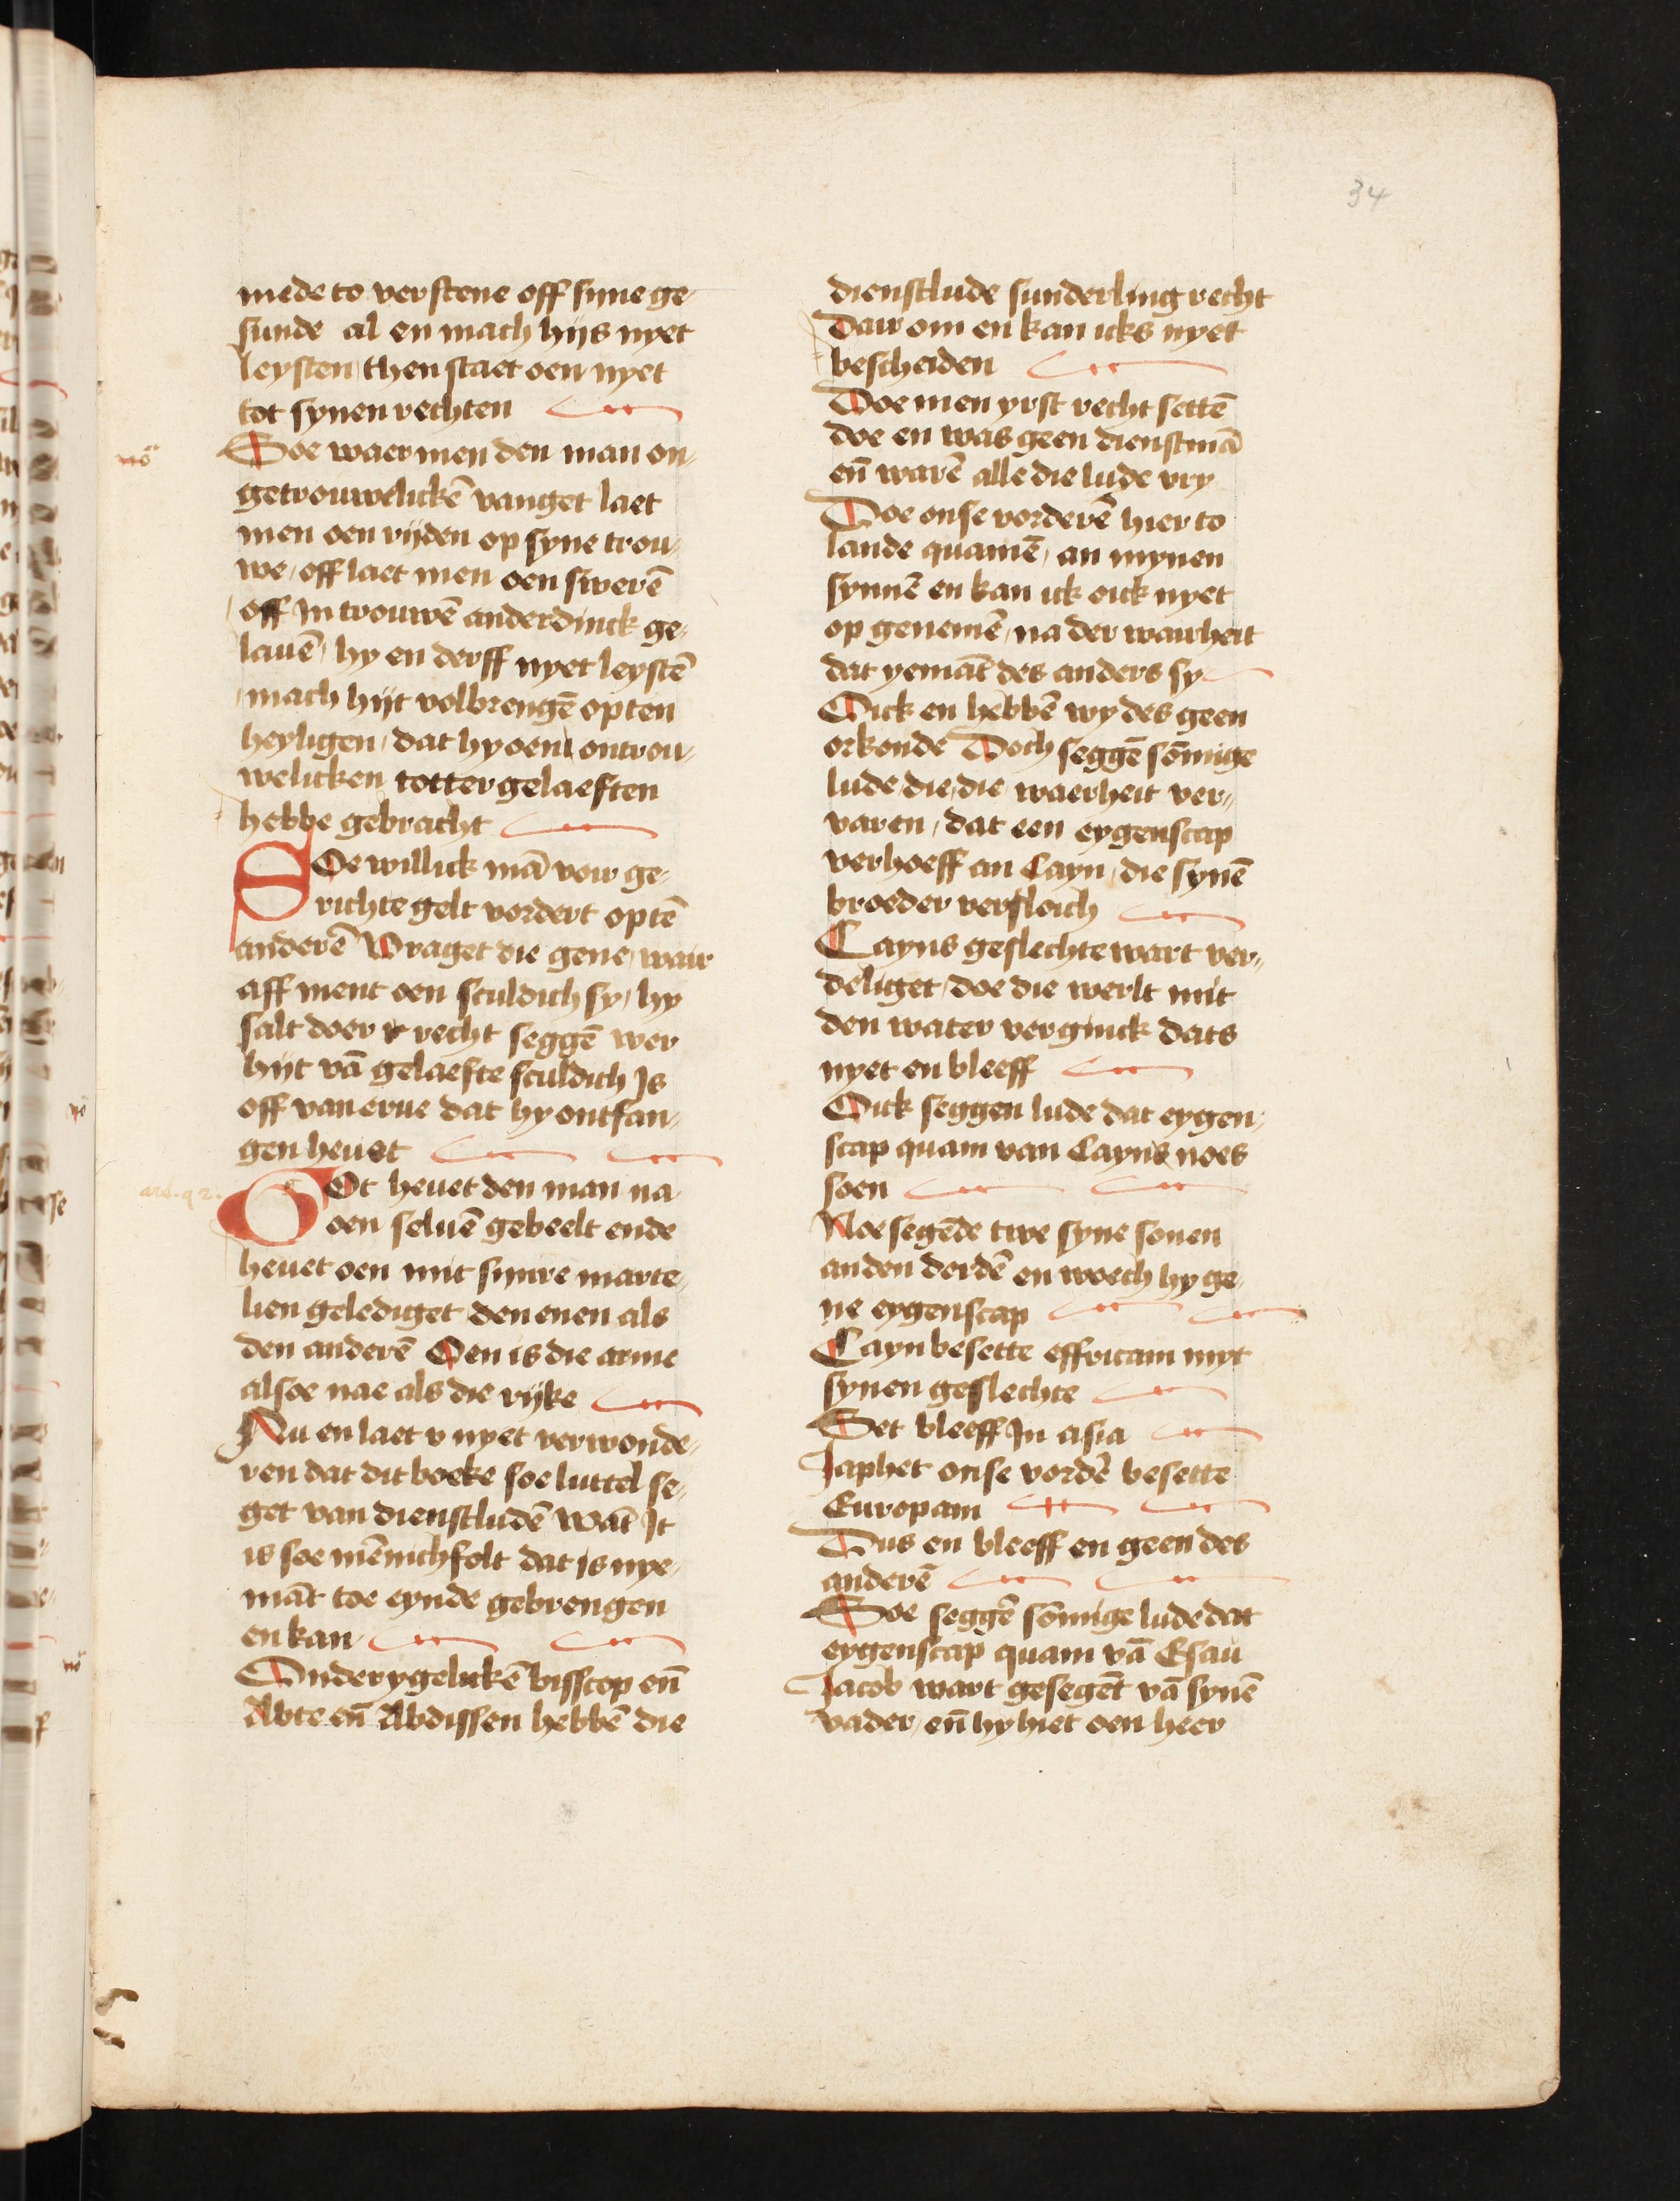 34
mede to verstene off syne ge-
sunde al en mach hijs nyet
leysten / then staet oen nyet
tot synen rechten
Soe waer men den man on-
getrouwelickē vanget laet
men oen rijden op syne trou-
we / off laet men oen swerē
off In trouwē anderdinck ge-
lauē / hy en derff nyet leystē
mach hijt volbrengē op ten
heyligen / dat hy oem ontrou-
welicken totter gelaeften
hebbe gebracht
SOe willick mā voir ge-
richte gelt vordert op tē
anderē Vraget die gene / wair
aff ment oen sculdich sy / hy
salt doer recht seggē wer
hijt vā gelaefte sculdich Is
off van erue dat hy ontfan-
gen heuet
GOt heuet den man na
oen seluē gebeelt ende
heuet oen mit synre marte-
lien gelediget den enen als
den anderē Oen is die arme
alsoe nae als die rijke
Nu en laet v nyet verwonde-
ren dat dit boeke soe luttel se-
get van dienstludē wāt It
is soe mēnichfolt dat is nye-
māt toe eynde gebrengen
en kan
Onder ygelickē bisscop eñ
Abte eñ Abdissen hebbē die
dienstlude sunderling recht
Dair om en kan icks nyet
bescheiden
Doe men yrst recht settē
doe en was geen dienstmā
eñ warē alle die lude vry
Doe onse vorderē hier to
lande quamē / an mynen
synnē en kan ick oick nyet
op genemē / na der wairheit
dat yemāt des anders sy
Oick en hebbē wy des geen
orkonde Doch seggē sōmige
lude / die die waerheit ver-
varen / dat een eygenscap
verhoeff an Cayn / die synē
broeder versloich
Cayns geslechte wart ver-
deliget / doe die werlt mit
den water verginck dats
nyet en bleeff
Oick seggen lude dat eygen-
scap quam van Cayns noes
soen
Noe segēde twe syne sonen
an den derdē en woech hy ge-
ne eygenscap
Cayn besette effricam myt
synen geslechte
Set bleeff In asia
Japhet onse vordē besette
Europam
Dus en bleeff en geen des
anderē
Soe seggē sōmige lude dat
eygenscap quam vā Esau
Jacob wart gesegēt vā synē
vader / eñ hy hiet oen heer